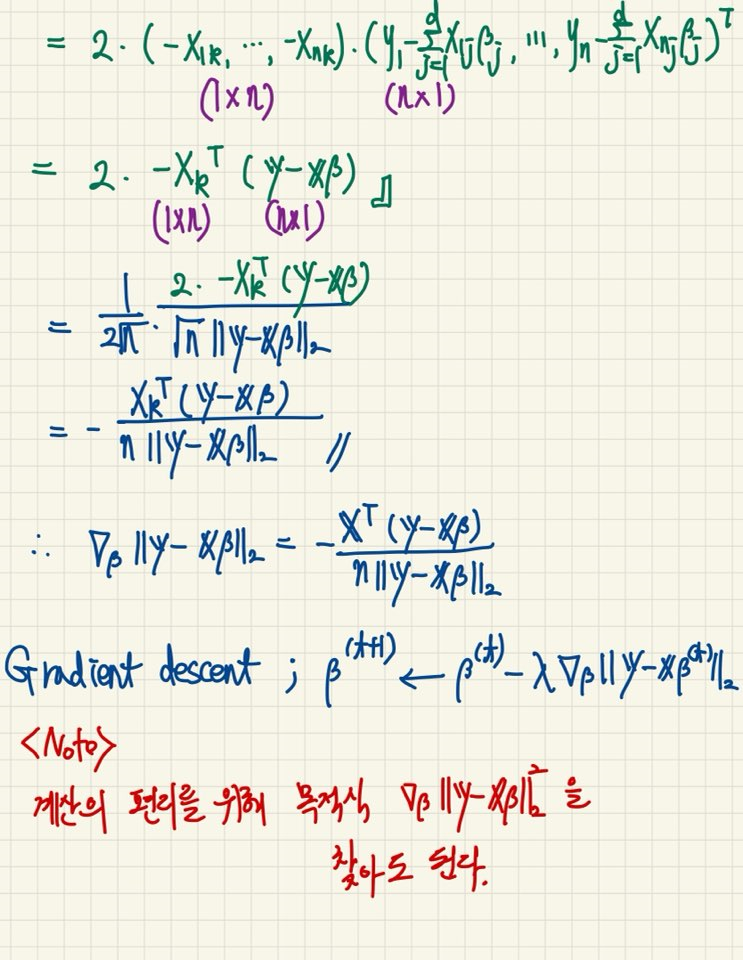 = 2 · (-X₁ₖ, ⋯, -Xₙₖ) · (y₁ - Σ_{j=1}^{d} X₁ⱼβⱼ, ⋯, yₙ - Σ_{j=1}^{d} Xₙⱼβⱼ)ᵀ
(1×n) (n×1)
= 2 · -Xₖᵀ (𝕪 - 𝕏β) 」
(1×n) (n×1)
= 1/(2√n) · (2 · -Xₖᵀ (𝕪 - 𝕏β))/(√n ‖𝕪 - 𝕏β‖₂)
= - (Xₖᵀ (𝕪 - 𝕏β))/(n ‖𝕪 - 𝕏β‖₂) //
∴ ∇_β ‖𝕪 - 𝕏β‖₂ = - (𝕏ᵀ (𝕪 - 𝕏β))/(n ‖𝕪 - 𝕏β‖₂)
Gradient descent ; β^(t+1) ← β^(t) - λ ∇_β ‖𝕪 - 𝕏β^(t)‖₂
<Note>
계산의 편리를 위해 목적식 ∇_β ‖𝕪 - 𝕏β‖₂² 을
찾아도 된다.